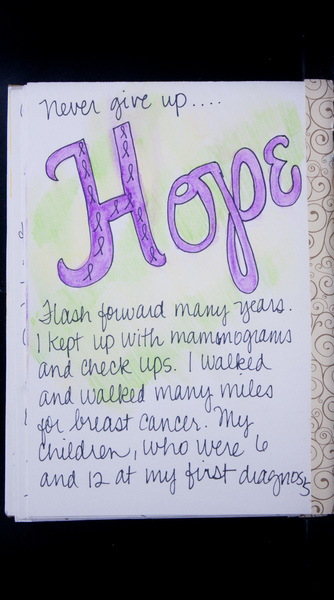 never give up....
Hope
Flash forward many years.
I kept up with mammograms
and check ups. I walked
and walked many miles
for breast cancer. My
children, who were 6
and 12 at my first diagnosis